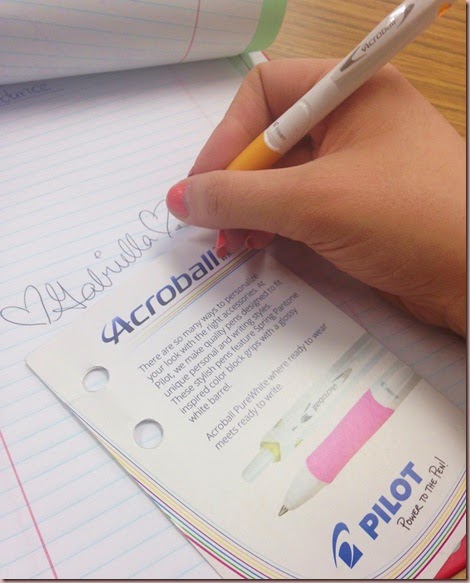 Acroball
Gabriella
Acroball
There are so many ways to personalize
your look with the right accessories. At
Pilot, we make quality pens designed to fit
unique personal and writing styles.
These stylish pens feature Spring Pantone
inspired color block grips with a glossy
white barrel.
Acroball PureWhite where ready to wear
meets ready to write.
Acroball
PILOT
POWER TO THE PEN!